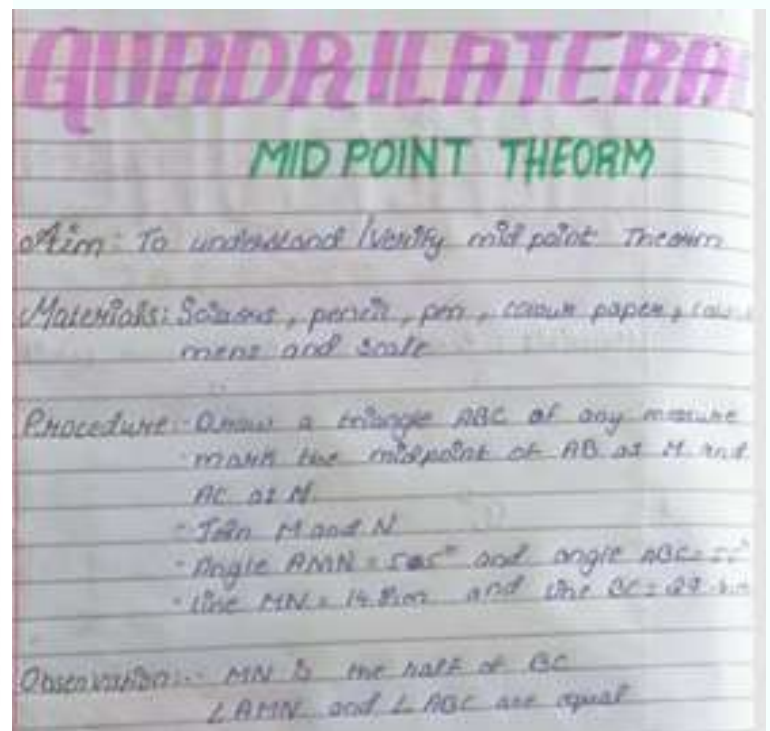 QUADRILATERA
MID POINT THEORM
Aim: To understand / Verify mid point Theorm
Materials: Scissors, pencil, pen, colour paper,
and scale
Procedure:- Draw a triangle ABC of any measure
- mark the midpoint of AB as M and
AC as N
- Join M and N
- Angle AMN = and angle ABC =
- Line MN = and line BC =
Observation:- MN is the half of BC
∠AMN and ∠ABC are equal